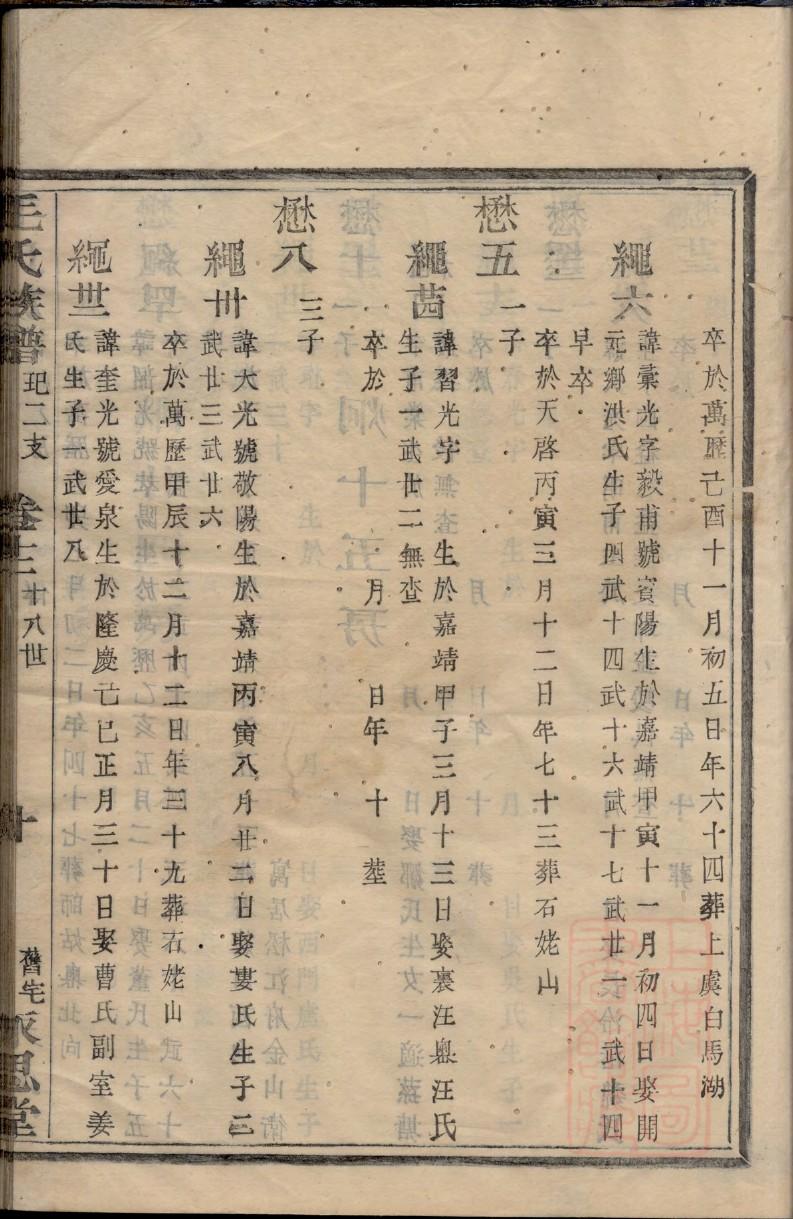 卒於萬歷己酉十一月初五日年六十四葬上虞白馬湖
繩六
諱彙光字毅甫號賓陽生於嘉靖甲寅十一月初四日娶開
元鄉洪氏生子四武十四武十六武十七武廿一武十四
早卒
卒於天啓丙寅三月十二日年七十三葬石姥山
懋五 一子
繩茴
諱習光字 生於嘉靖甲子三月十三日娶裏汪嶴汪氏
生子一武廿二無查
卒於 月 日年 十 塟
懋八 三子
繩卅
諱大光號敬陽生於嘉靖丙寅八月廿二日娶婁氏生子二
武廿三武廿六
卒於萬歷甲辰十二月十二日年三十九葬石姥山
繩丗
諱奎光號愛泉生於隆慶己巳正月三十日娶曹氏副室姜
氏生子一武廿八
王氏族譜 玘二支 卷十二 十八世 十 舊宅永思堂